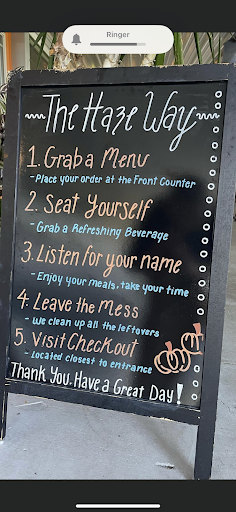 Ringer
The Haze Way
1. Grab a Menu
- Place your order at the Front Counter
2. Seat Yourself
- Grab a Refreshing Beverage
3. Listen for your name
- Enjoy your meals, take your time
4. Leave the Mess
- We clean up all the leftovers
5. Visit Checkout
- Located closest to entrance
Thank You. Have a Great Day!